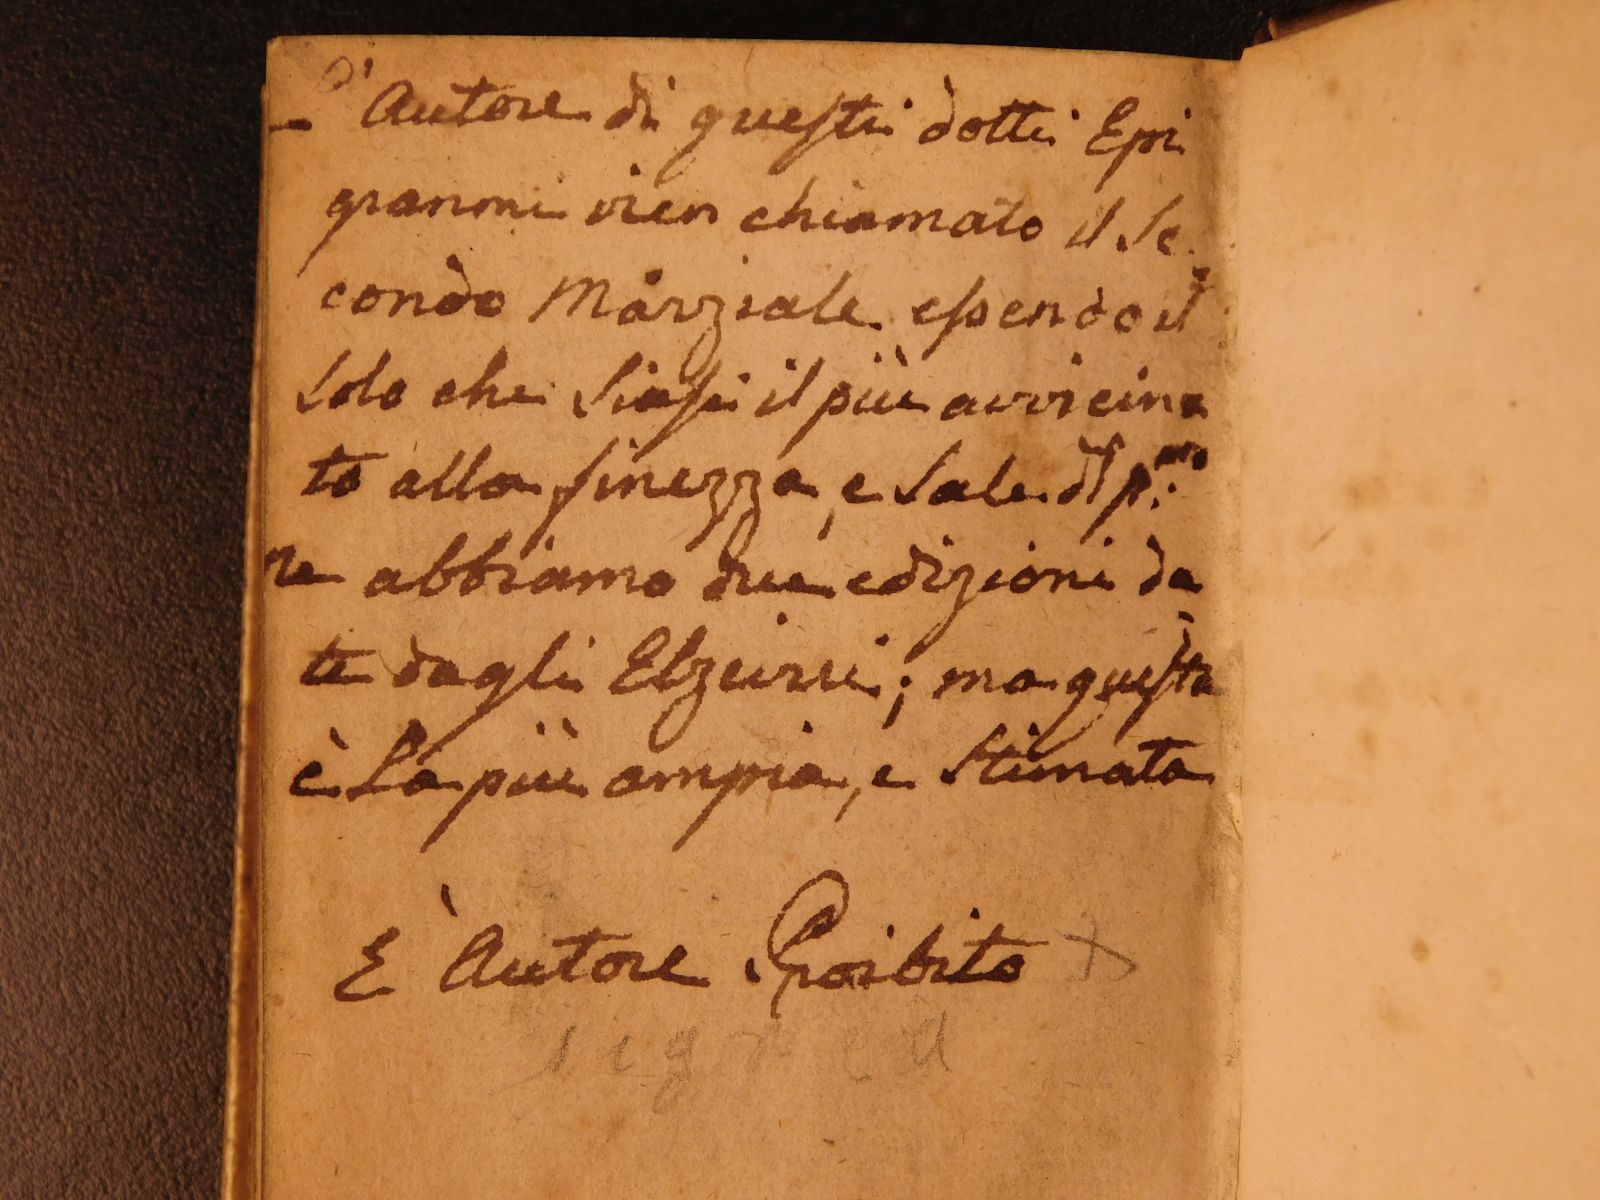 L'Autore di questi dotti Epi
grammi vien chiamato il Se
condo Marziale essendo il
Solo che Siasi il più avvicina
to alla finezza, e Sale del p.mo
ne abbiamo due edizioni da
te dagli Elzeviri; ma questa
è La più ampia, e Stimata
È Autore Proibito X
signed